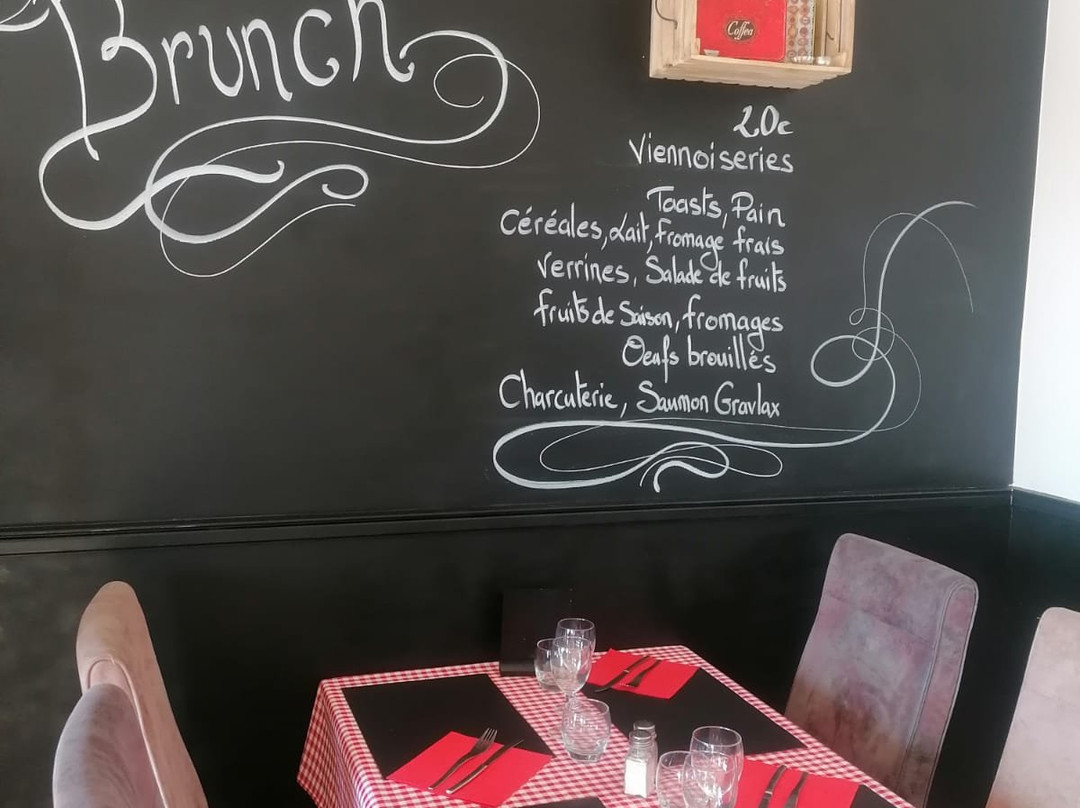 Brunch
Coffea
20€
Viennoiseries
Toasts, Pain
Céréales, Lait, fromage frais
Verrines, Salade de fruits
fruits de Saison, fromages
Oeufs brouillés
Charcuterie, Saumon Gravlax